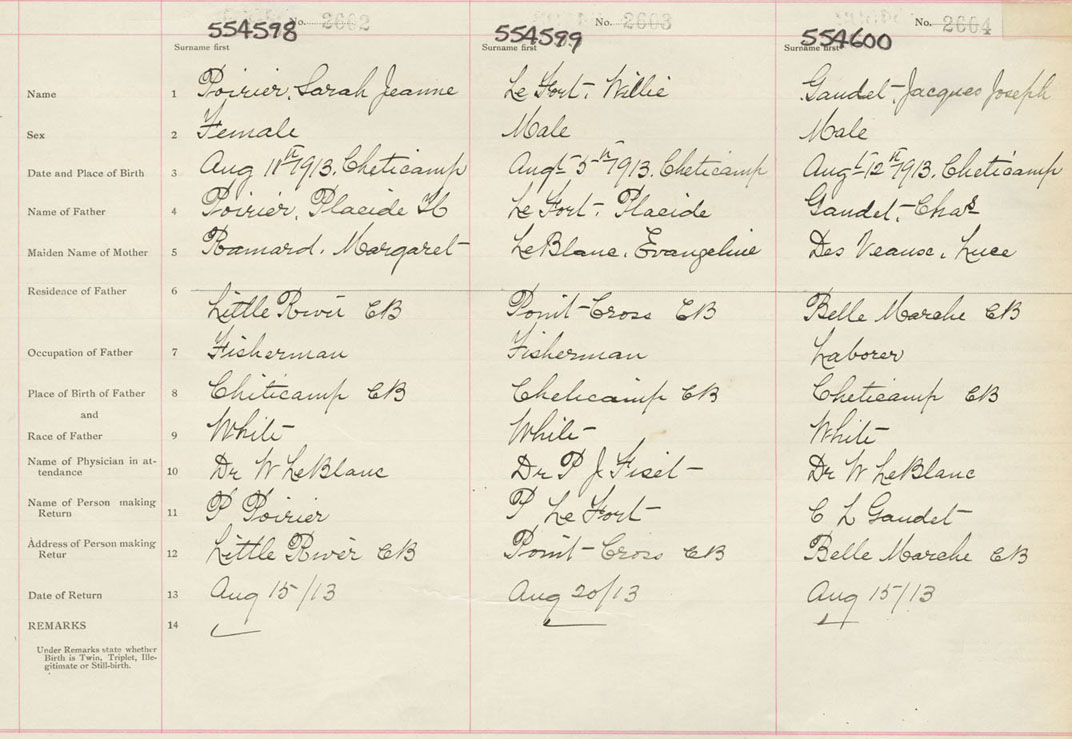 No. 2662 No. 2663 No. 2664
554598 554599 554600
Surname first Surname first Surname first
Name 1 Poirier, Sarah Jeanne Le Fort, Willie Gaudet, Jacques Joseph
Sex 2 Female Male Male
Date and Place of Birth 3 Aug 11th 1913. Cheticamp Augt 5th 1913. Cheticamp Augt 12th 1913. Cheticamp
Name of Father 4 Poirier, Placide H Le Fort, Placide Gaudet, Chas
Maiden Name of Mother 5 Margaret LeBlanc, Evangeline Des Veause, Luce
Residence of Father 6
Little River CB Point Cross CB Belle Marche CB
Occupation of Father 7 Fisherman Fisherman Laborer
Place of Birth of Father 8 Cheticamp CB Cheticamp CB Cheticamp CB
and
Race of Father 9 White White White
Name of Physician in at-
tendance 10 Dr W LeBlanc Dr P J Fiset Dr W LeBlanc
Name of Person making
Return 11 P Poirier P Le Fort C L Gaudet
Address of Person making
Retur 12 Little River CB Point Cross CB Belle Marche CB
Date of Return 13 Aug 15/13 Aug 20/13 Aug 15/13
REMARKS 14
Under Remarks state whether
Birth is Twin, Triplet, Ille-
gitimate or Still-birth.